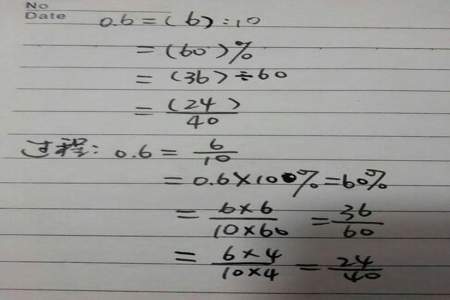 No
Date
0.6=(6):10
=(60)%
=(36)÷60
=(24)/40
过程:0.6=6/10
=0.6×100%=60%
=6×6/10×60=36/60
=6×4/10×4=24/40